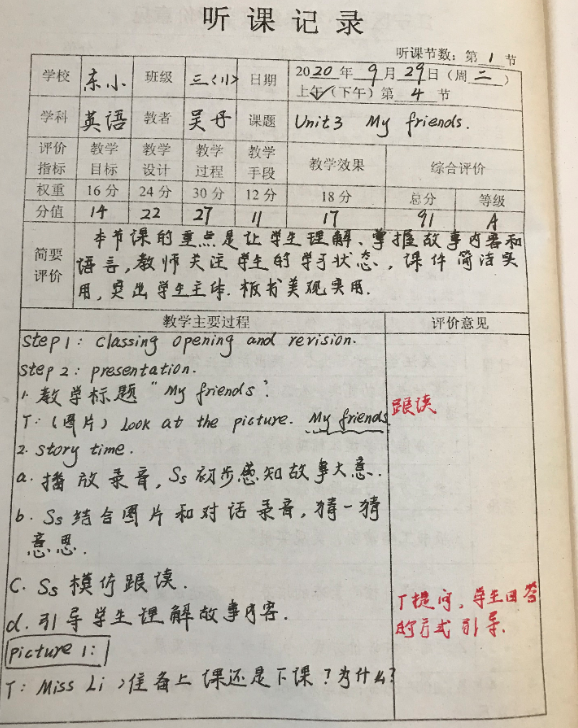 听课记录
听课节数：第 1 节
学校 东小 班级 三（1） 日期 2020年 9月 29日（周二）
上午（下午）第 4 节
学科 英语 教者 吴丹 课题 Unit3 My friends.
评价指标 教学目标 教学设计 教学过程 教学手段 教学效果 综合评价
权重 16分 24分 30分 12分 18分 总分 等级
分值 14 22 27 11 17 91 A
简要评价 本节课的重点是让学生理解、掌握故事内容和
语言，教师关注学生的学习状态，课件简洁实
用，突出学生主体.板书美观实用.
教学主要过程 评价意见
Step 1: Classing opening and revision.
Step 2: presentation.
1. 教学标题 "My friends".
T:（图片）Look at the picture. My friends 跟读
2. story time.
a. 播放录音，Ss初步感知故事大意.
b. Ss结合图片和对话录音，猜一猜
意思.
C. Ss模仿跟读.
d. 引导学生理解故事内容.
T提问，学生回答
的方式引导.
picture 1:
T: Miss Li 准备上课还是下课？为什么？